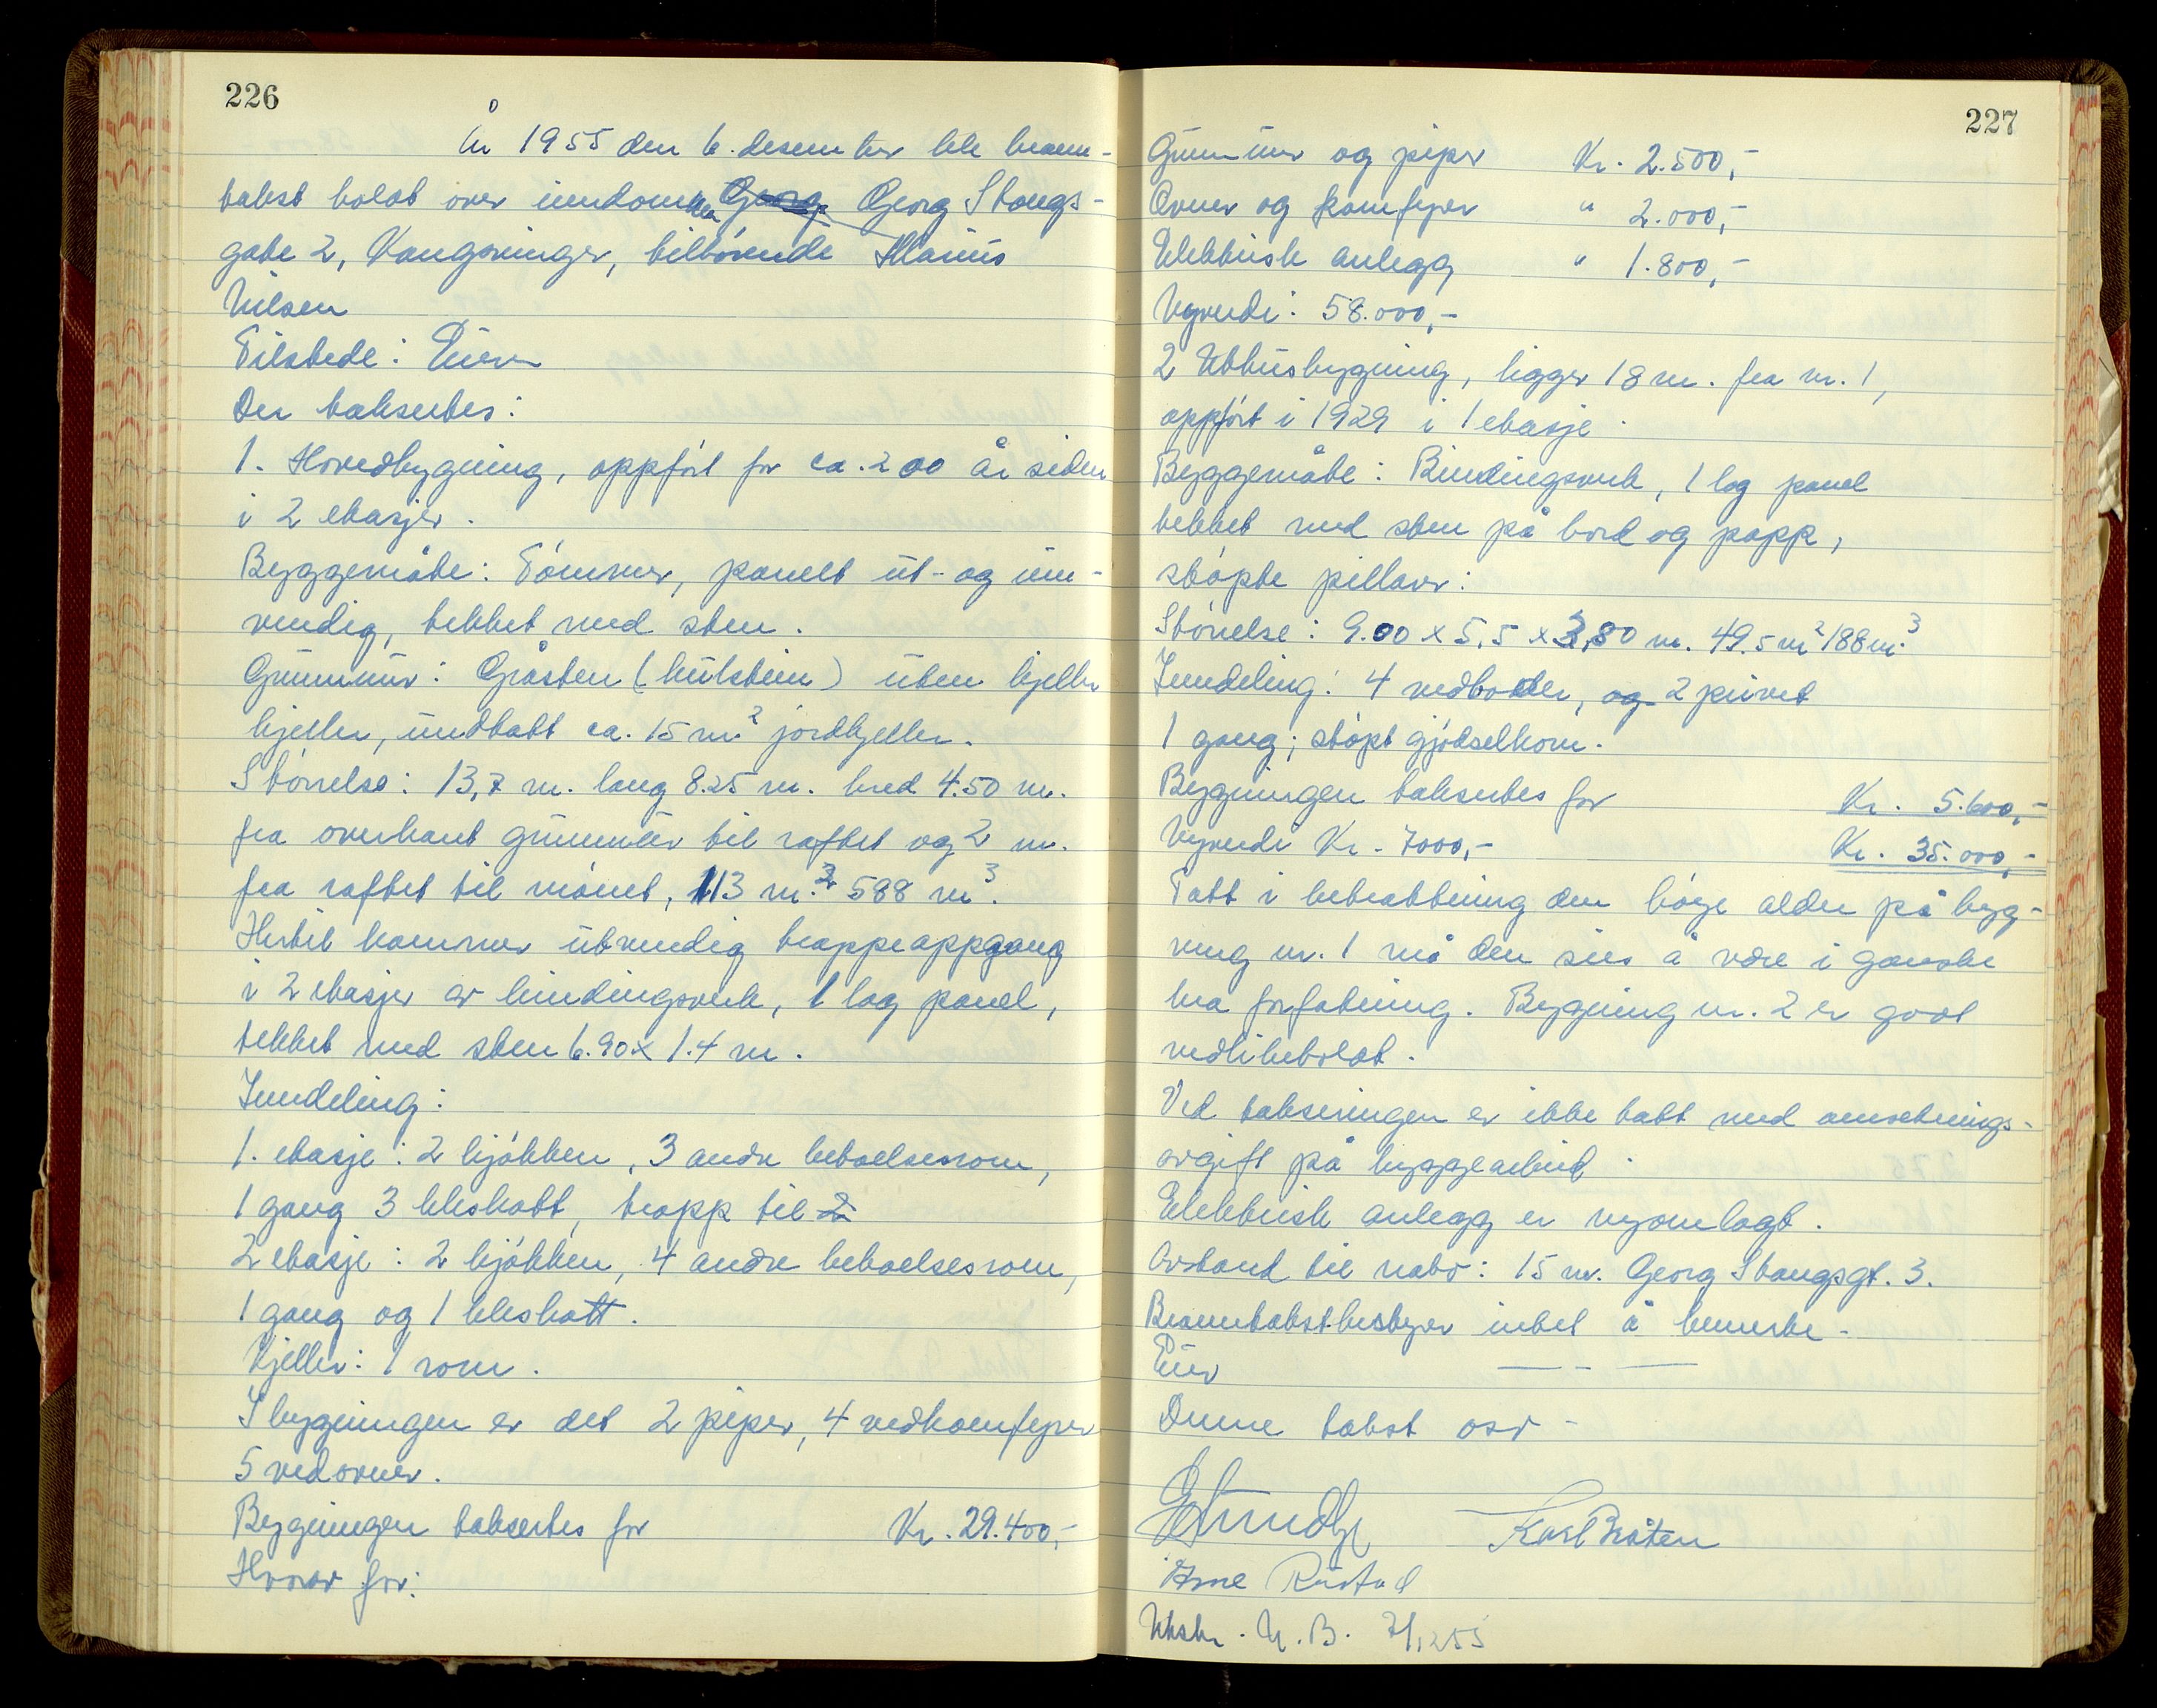 226
År 1955 den 6. desember ble brann-
takst holdt over eiendommen Georg Georg Stangs-
gate 2, Kongsvinger, tilhørende Marius
Nilsen
Tilstede: Eieren
Der takseertes:
1. Hovedbygning, oppført for ca. 200 år siden
i 2 etasjer.
Byggemåte: Tømmer, panelt ut- og inn-
vendig, tekket med sten.
Grunnmur: Gråsten (kultstein) uten kjeller
kjeller, undtatt ca. 15 m² jordkjeller.
Størrelse: 13,7 m. lang 8.25 m. bred 4.50 m.
fra overkant grunnmur til raftet og 2 m.
fra raftet til mønet, 113 m.² 588 m³.
Hertil kommer utvendig trappeoppgang
i 2 etasjer av bindingsverk, 1 lag panel,
tekket med sten 6.90 x 1.4 m.
Inndeling:
1. etasje: 2 kjøkken, 3 andre beboelsesrom,
1 gang 3 kleskott, trapp til 2
2 etasje: 2 kjøkken, 4 andre beboelsesrom,
1 gang og 1 kleskott.
Kjeller: 1 rom.
I bygningen er det 2 piper, 4 vedkomfyrer
5 vedovner.
Bygningen takseertes for Kr. 29.400,-
Hvorav for:
227
Grunnmur og piper Kr. 2.500,-
Ovner og komfyrer " 2.000,-
Elektrisk anlegg " 1.800,-
Nyverdi: 58.000,-
2 Uthusbygning, ligger 18 m. fra nr. 1,
oppført i 1929 i 1 etasje.
Byggemåte: Bindingsverk, 1 lag panel
tekket med sten på bord og papp,
støpte pillarer:
Størrelse: 9.00 x 5,5 x 3,80 m. 49.5 m² 188 m.³
Inndeling: 4 vedboder, og 2 privet
1 gang; støpt gjødselkom.
Bygningen takseertes for Kr. 5.600,-
Nyverdi Kr. 7000,- Kr. 35.000,-
Tatt i betraktning den høye alder på byg-
ning nr. 1 må den sies å være i ganske
bra forfatning. Bygning nr. 2 er godt
vedlikeholdt.
Ved takseringen er ikke tatt med omsetnings-
avgift på byggearbeid.
Elektrisk anlegg er nyomlagt.
Avstand til nabo: 15 m. Georg Stangsgt. 3.
Branntakstbestyrer intet å bemerke -
Eier — - —
Denne takst osv -
Karl Bråten
Arne Rustad
Utskr. N. B. 7/1255